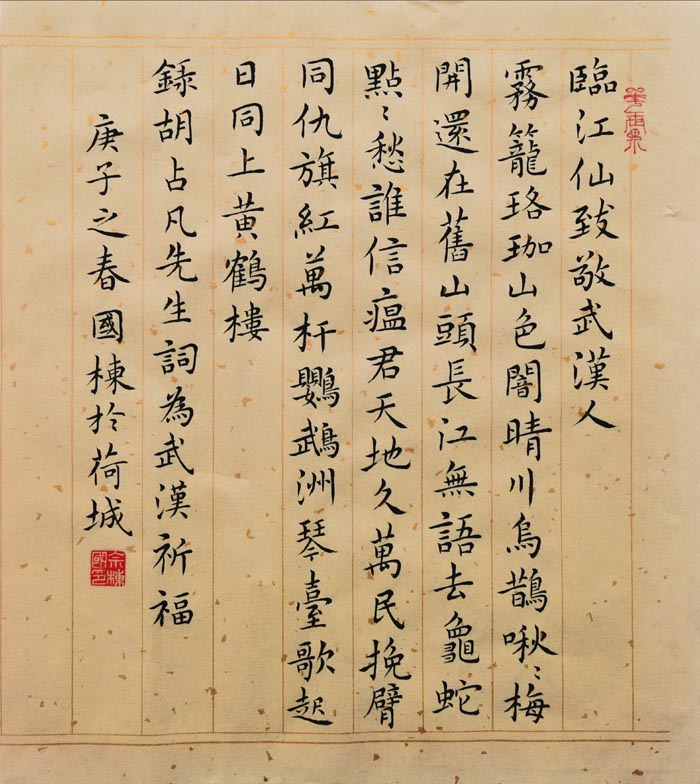 臨江仙致敬武漢人
霧籠珞珈山色闇晴川烏鵲啾〻梅
開還在舊山頭長江無語去龜蛇
點〻愁誰信瘟君天地久萬民挽臂
同仇旗紅萬杆鸚鵡洲琴臺歌起
日同上黃鶴樓
錄胡占凡先生詞為武漢祈福
庚子之春國棟於荷城